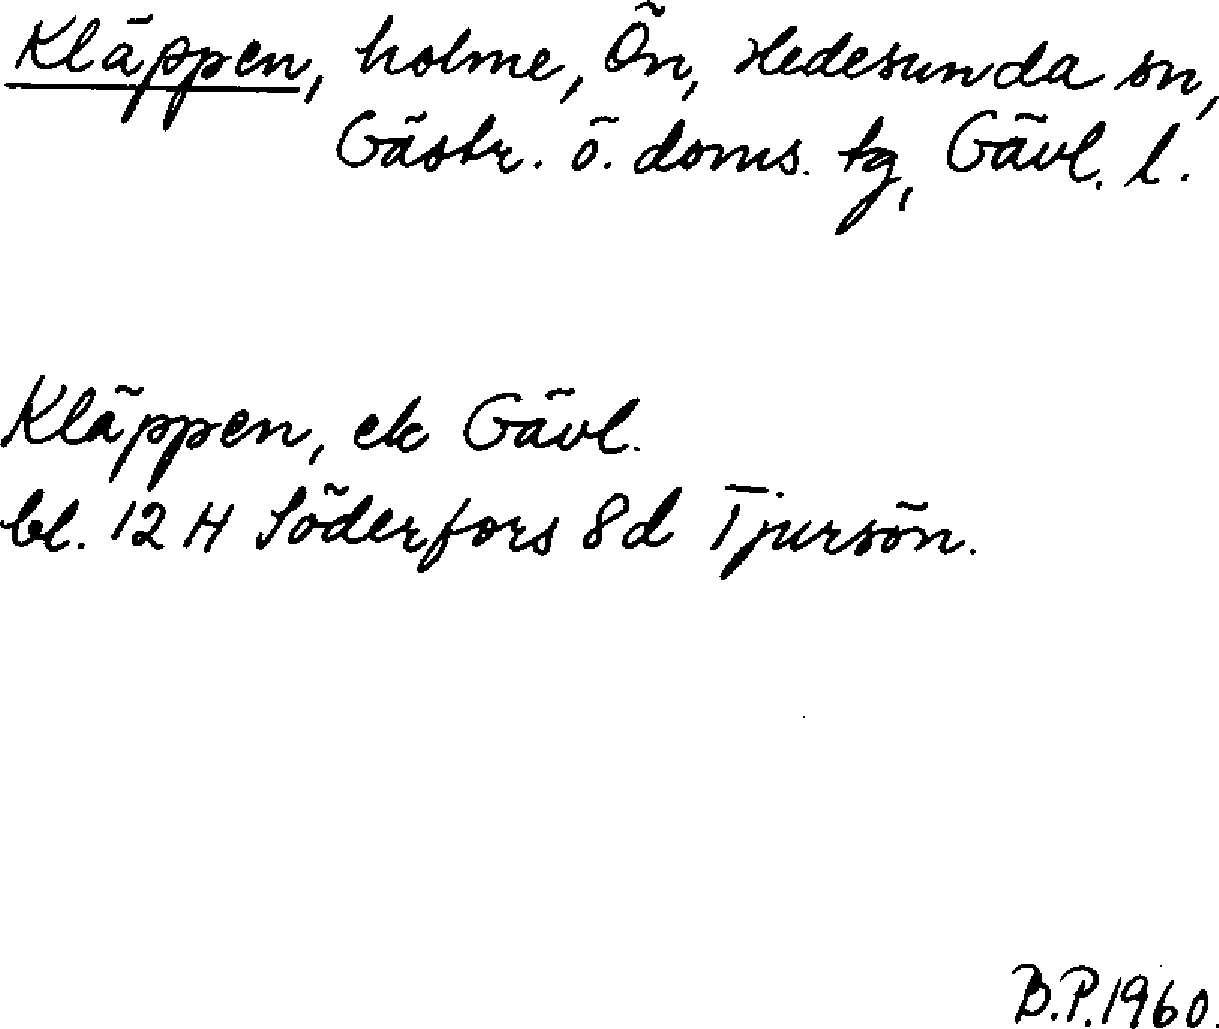 Kläppen, holme, Ön, Hedesunda sn,
Gästr. ö. doms. tg, Gävl. l.
Kläppen, ek Gävl.
bl. 12 H Söderfors 8d Tjursön.
B.P. 1960.